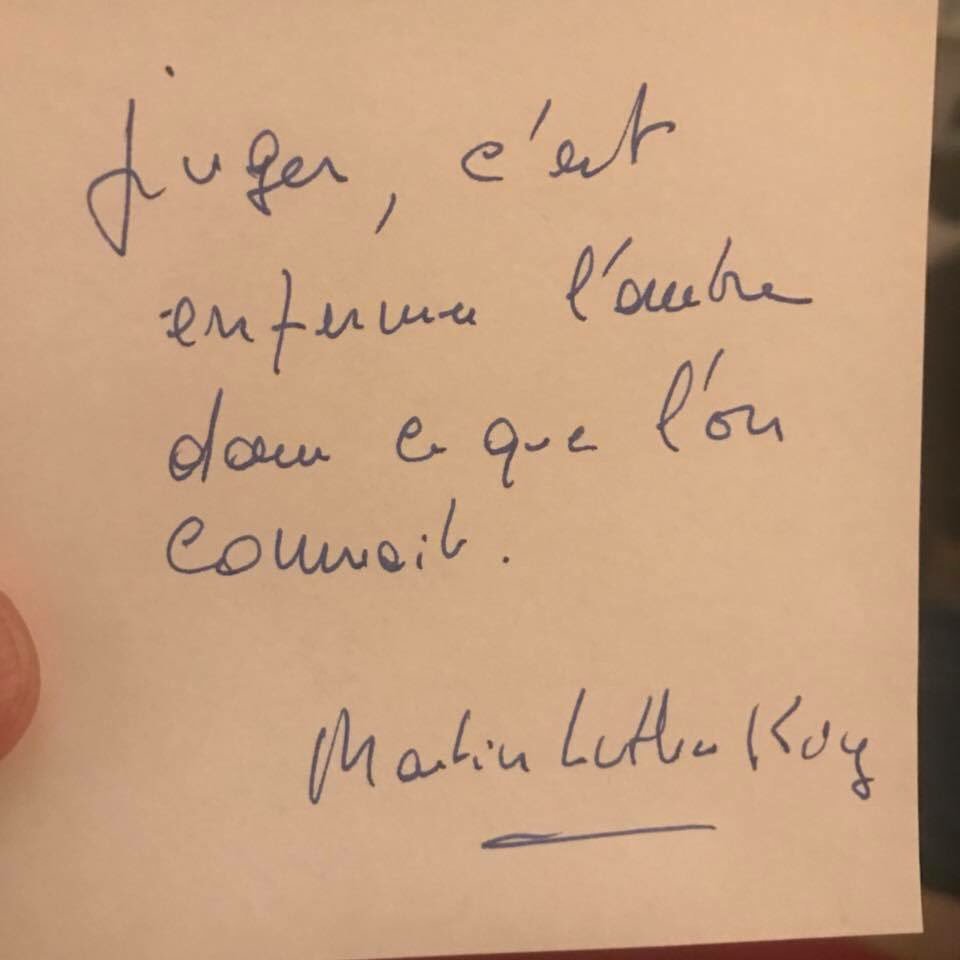 juger, c'est
enfermer l'autre
dans ce que l'on
connait.
Martin Luther King